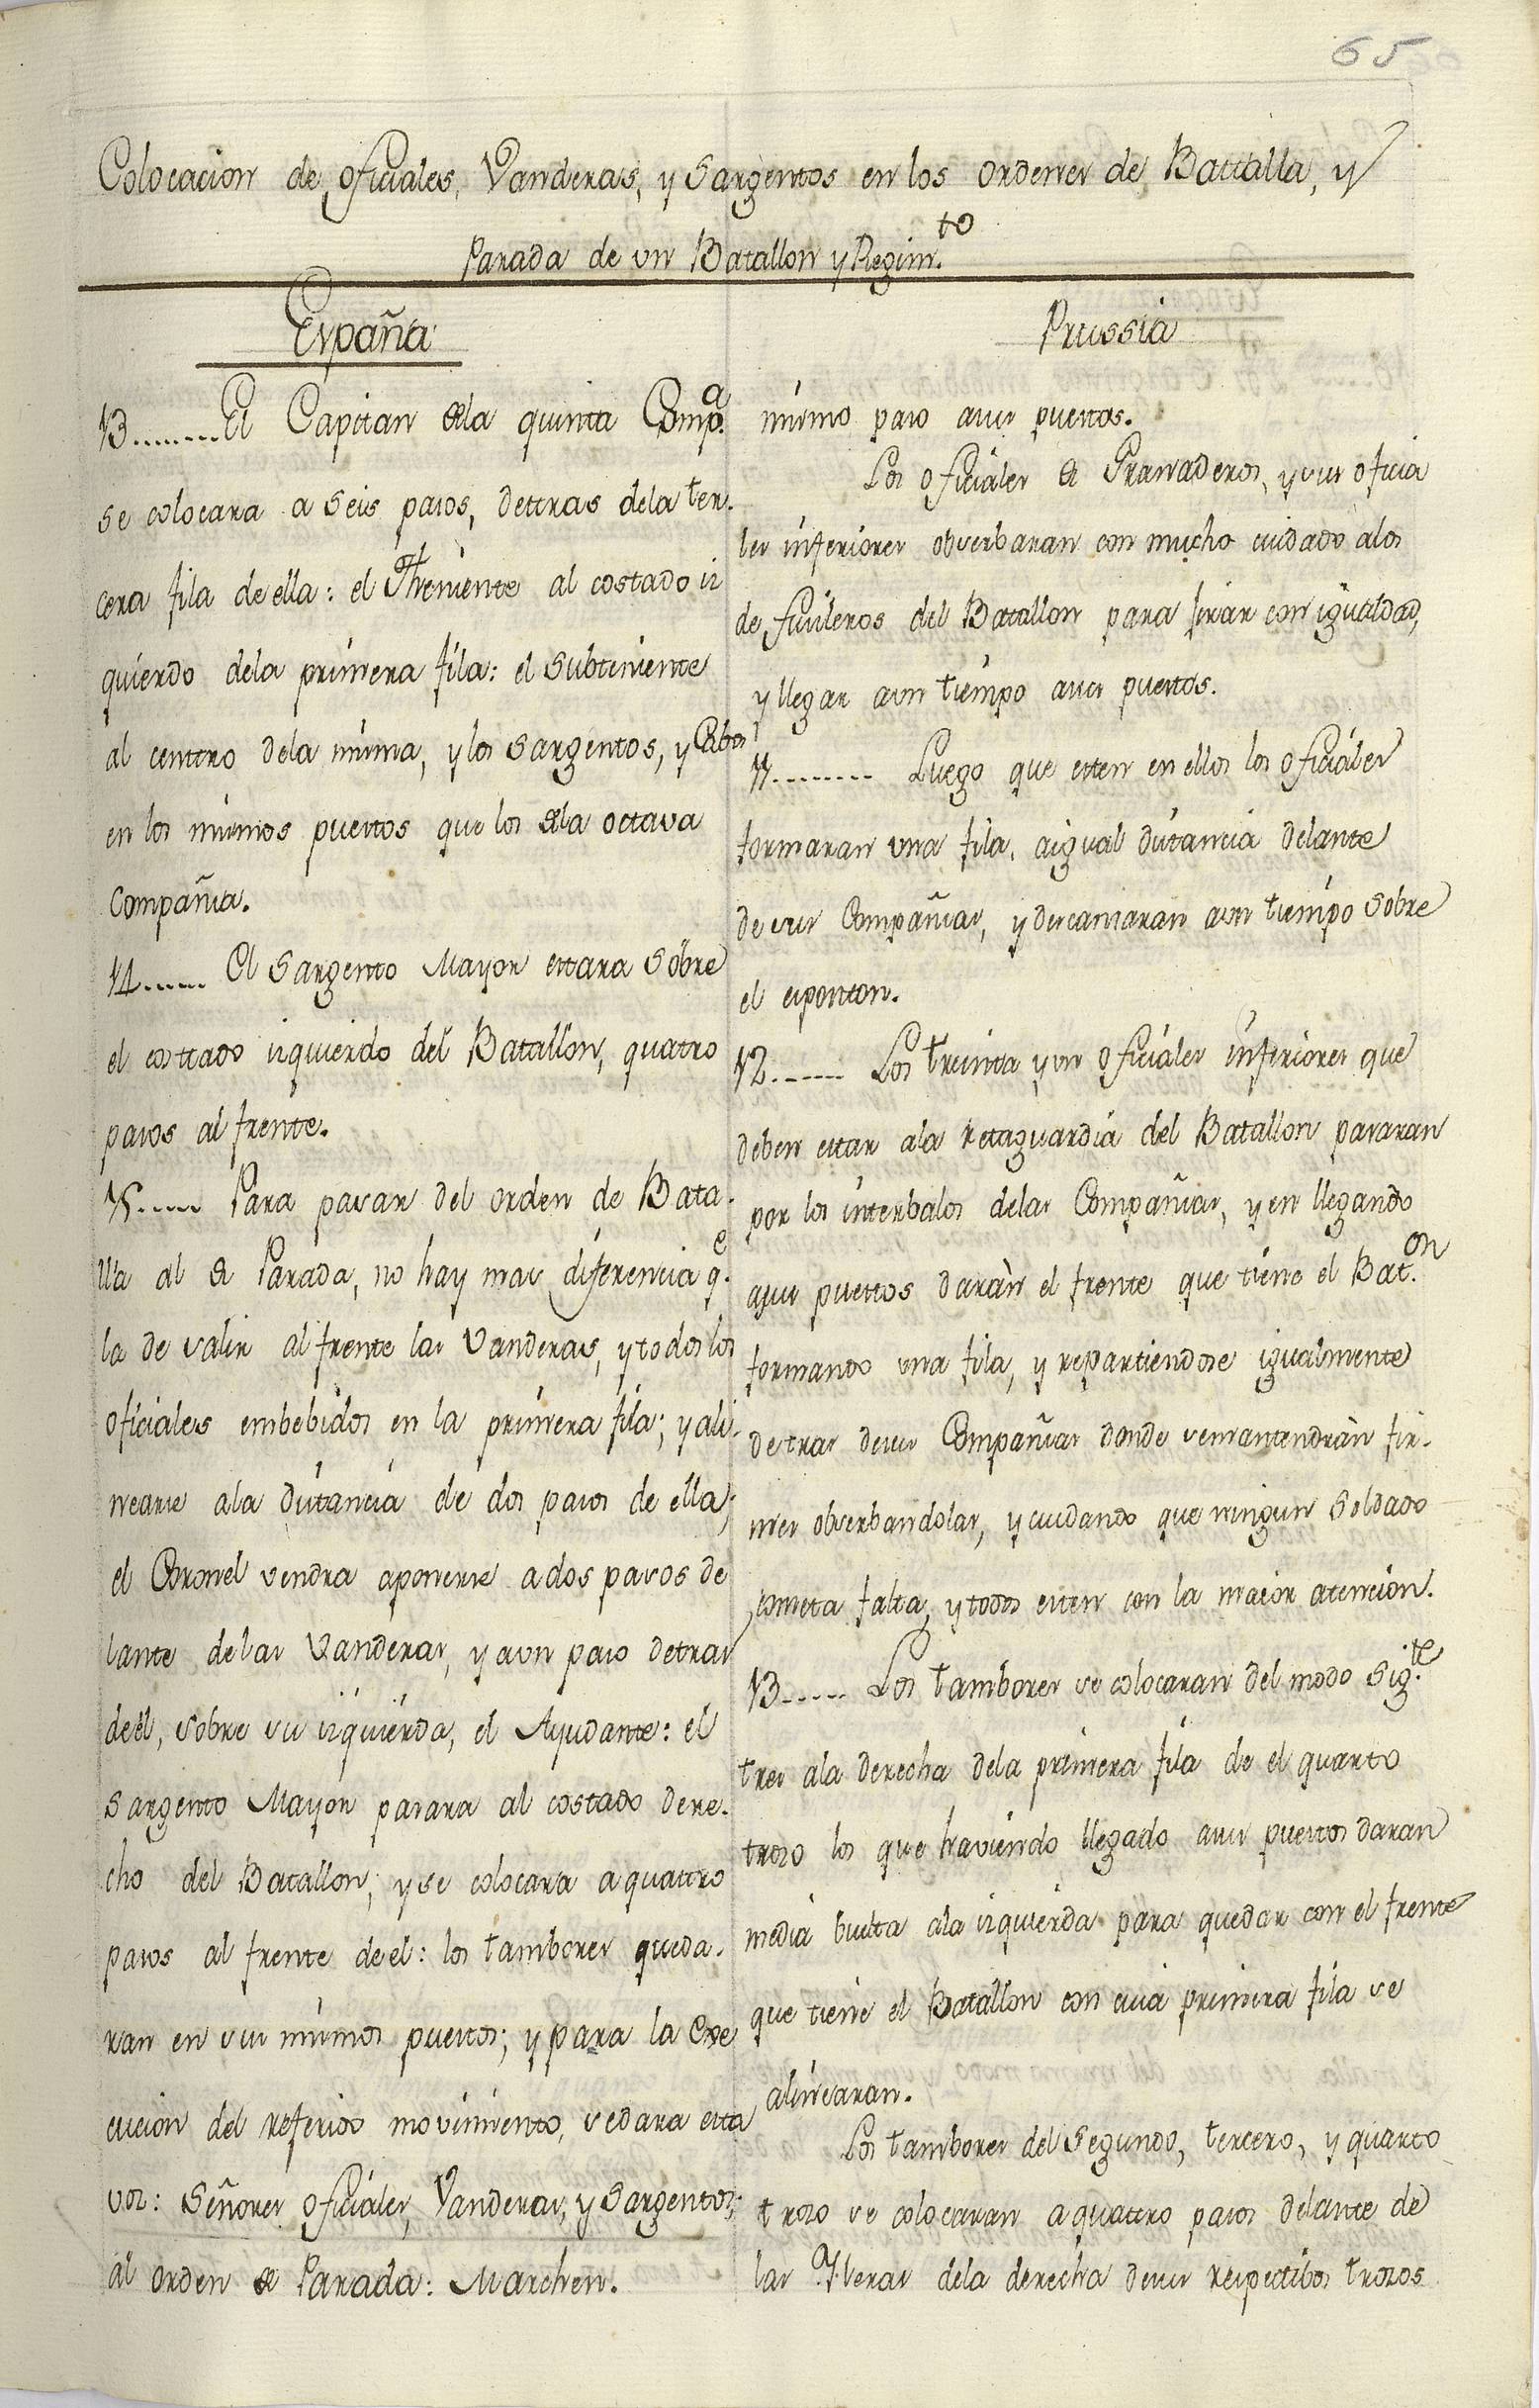 65
Colocacion de oficiales, Vanderas, y Sargentos en los ordenes de Battalla, y
Parada de vn Batallon y Regim.to
España
13........El Capitan dela quinta Comp.a
se colocara a seis pasos, detras dela ter-
cera fila de ella: el Theniente al costado iz
quierdo dela primera fila: el subteniente
al centro dela misma, y los sargentos, y Cabos
en los mismos puestos que los dela octava
Compañia.
14...... El Sargento Mayor estara sobre
el costado izquierdo del Batallon, quatro
pasos al frente.
15..... Para pasar del orden de Bata-
lla al de Parada, no hay mas diferencia q.e
la de salir al frente las Vanderas, y todos los
oficiales embebidos en la primera fila; y ali-
nearse ala distancia de dos pasos de ella;
el Coronel vendra aponerse a dos pasos de
lante delas Vanderas, y aun paso detras
deél, sobre su izquierda, el Ayudante: el
Sargento Mayor pasara al costado dere-
cho del Batallon; y se colocara a quattro
pasos al frente de el: los tambores queda-
ran en sus mismos puestos; y para la Exe
cucion del referido movimiento, sedara esta
voz: Señores oficiales, Vanderas, y Sargentos;
al orden de Parada: Marchen.
Prussia
mismo paso asus puestos.
Los oficiales de Granaderos, y sus oficia
les inferiores observaran con mucho cuidado alos
de fusileros del Batallon para jirar con igualdad,
y llegar aun tiempo asus puestos.
11......... Luego que esten en ellos los oficiales
formaran una fila, aigual distancia delante
de sus Compañias, y descansaran aun tiempo sobre
el esponton.
12....... Los treinta y un oficiales inferiores que
deben estar ala retaguardia del Batallon pasaran
por los interbalos delas Compañias, y en llegando
asus puestos darán el frente que tiene el Bat.on
formando una fila, y repartiendose igualmente
detras desus Compañias donde semantendràn fir-
mes obserbandolas, y cuidando que ningun soldado
cometa falta, y todos esten con la maior atencion.
13...... Los tambores se colocaran del modo sig.te
tres ala derecha dela primera fila de el quarto
trozo los que haviendo llegado asus puestos daran
media buelta ala izquierda para quedar con el frente
que tiene el Batallon con cuia primera fila se
alinearan.
Los tambores del segundo, tercero, y quarto
trozo se colocaran a quattro pasos delante de
las Yleras dela derecha desus respectibos trozos